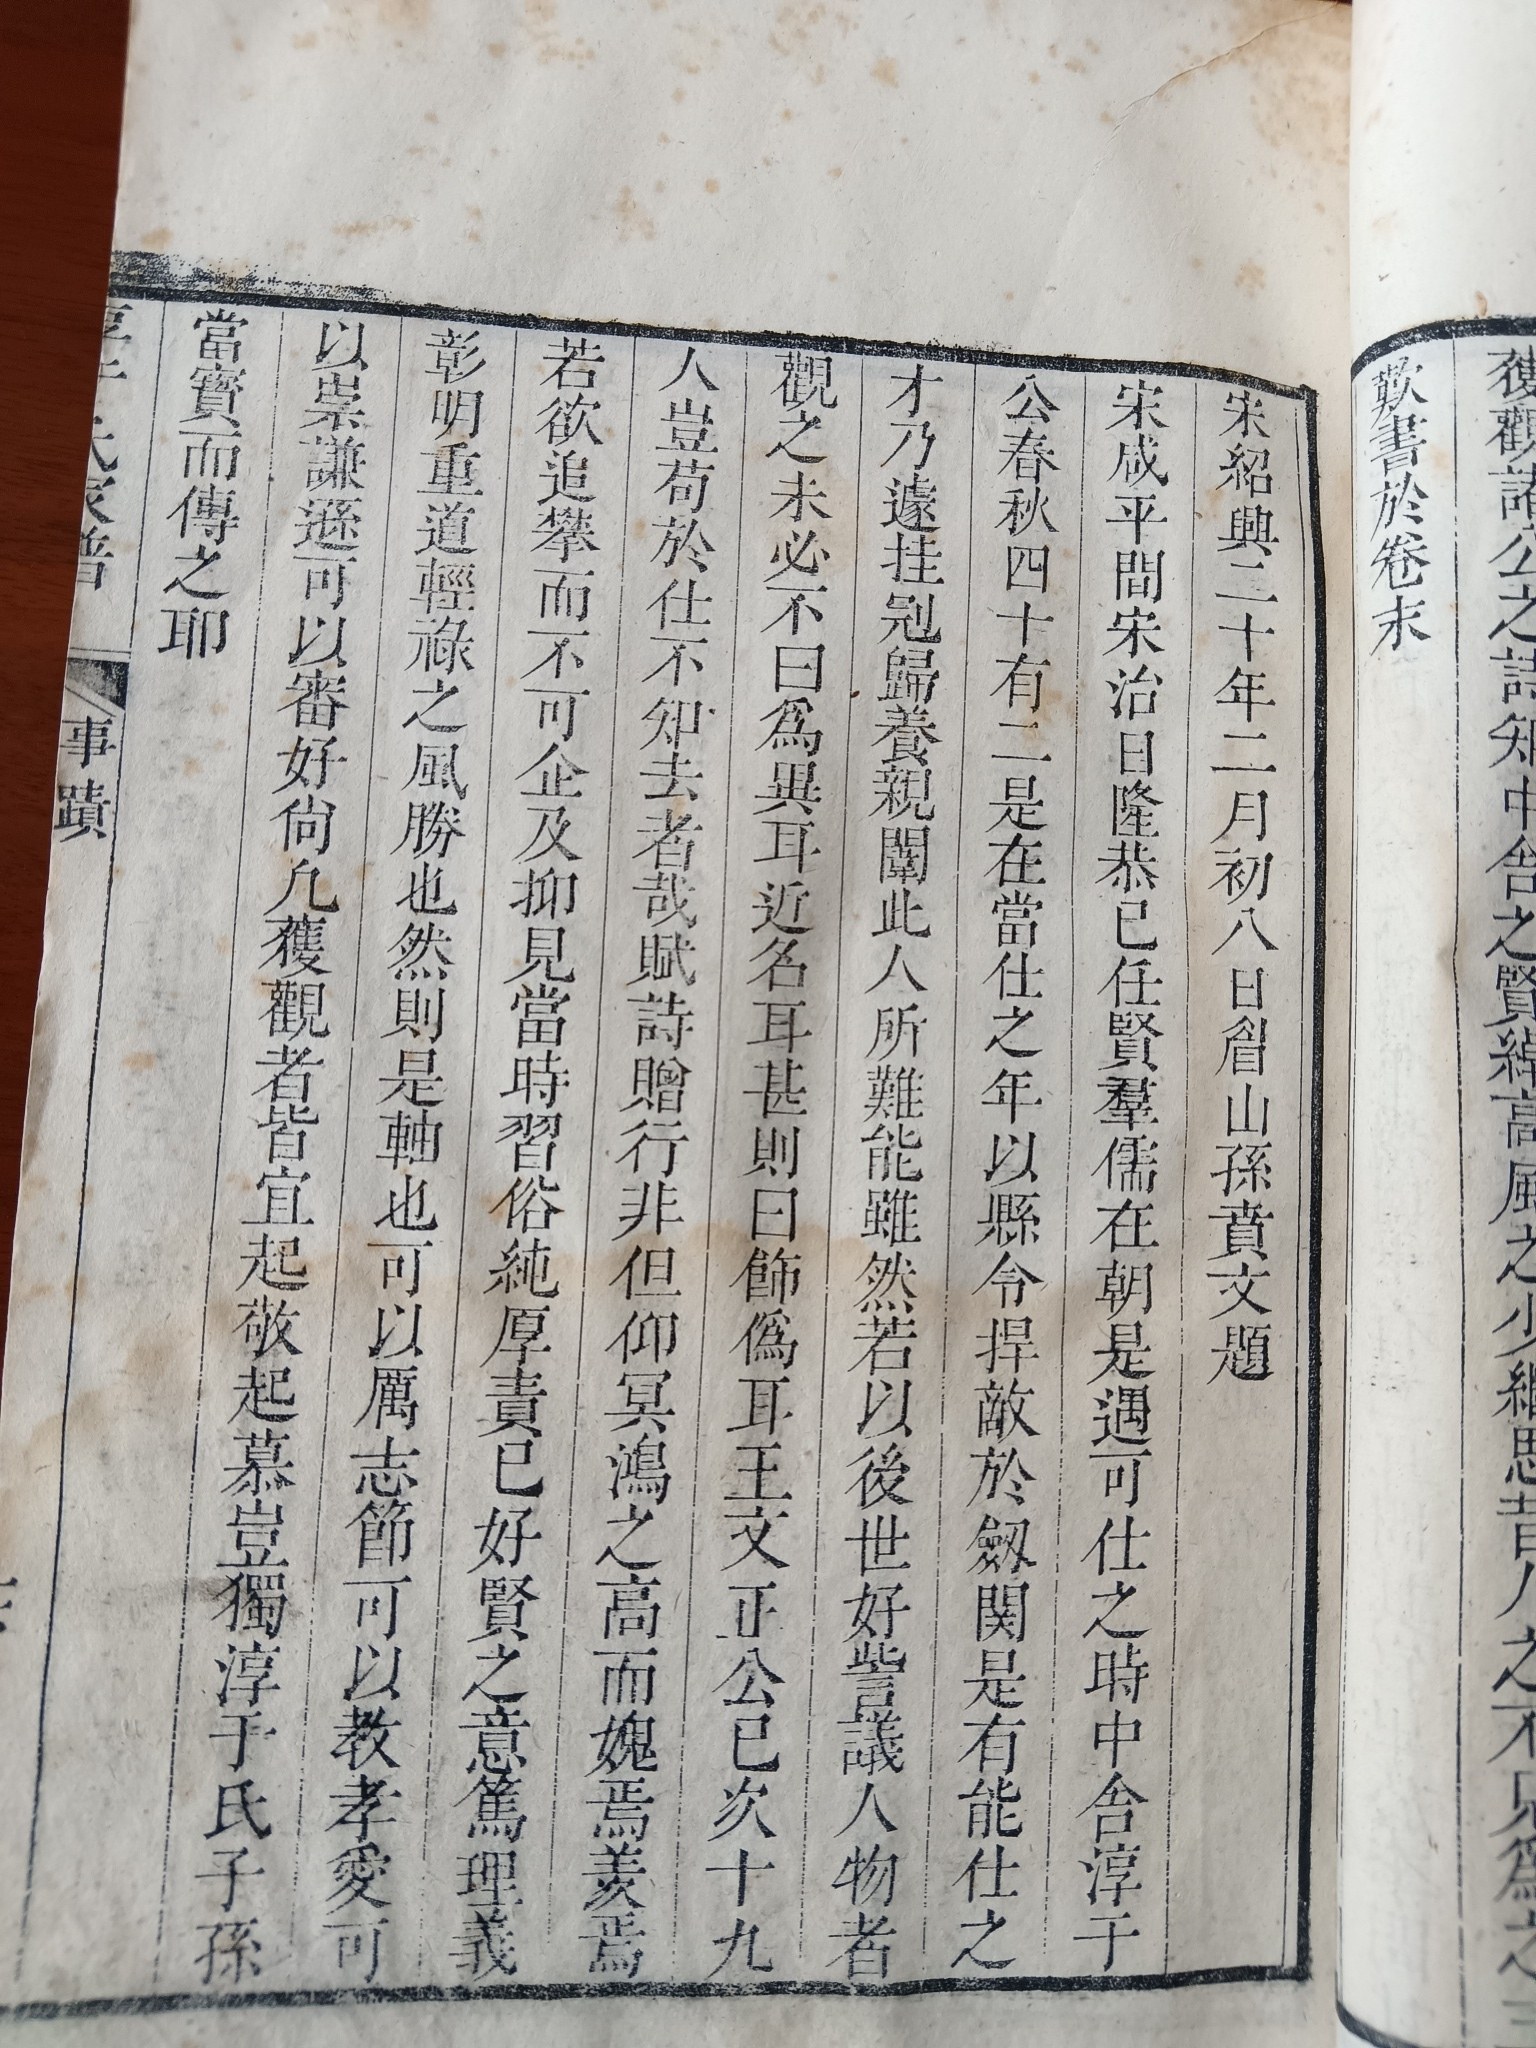 獲觀諸公之詩知中舍之賢綽高風之少繼思昔人之不見爲之
歎書於卷末
宋紹興二十年二月初八日眉山孫賁文題
宋咸平間宋治日隆恭已任賢羣儒在朝是遇可仕之時中舍淳于
公春秋四十有二是在當仕之年以縣令捍敵於劔関是有能仕之
才乃遽挂冠歸養親闈此人所難能雖然若以後世好訾議人物者
觀之未必不曰爲異耳近名耳甚則曰飾僞耳王文正公已次十九
人豈苟於仕不知去者哉賦詩贈行非但仰冥鴻之高而媿焉羨焉
若欲追攀而不可企及抑見當時習俗純厚責已好賢之意篤理義
彰明重道輕祿之風勝也然則是軸也可以厲志節可以教孝愛可
以崇謙遜可以審好尙凡獲觀者皆宜起敬起慕豈獨淳于氏子孫
當寳而傳之耶
氏家譜
事蹟